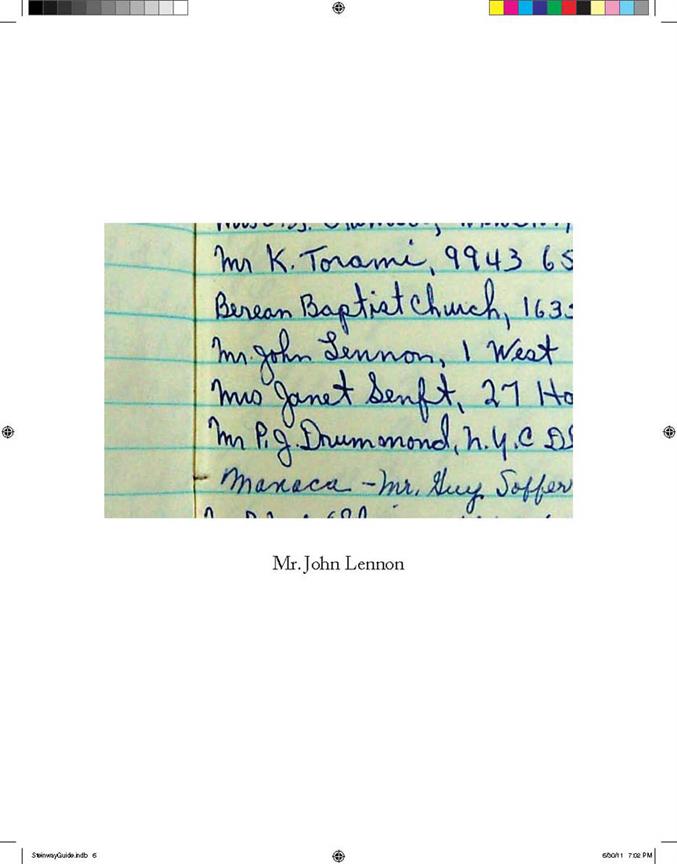 Mr K. Torami, 9943 65
Berean Baptist Church, 163
Mr. John Lennon, 1 West
Mrs Janet Senft, 27 Ho
Mr P. J. Drummond, N.Y.C
Manaca - Mr. Guy Soffer
Mr. John Lennon
SteinwayGuide.indb 6
6/30/11 7:02 PM